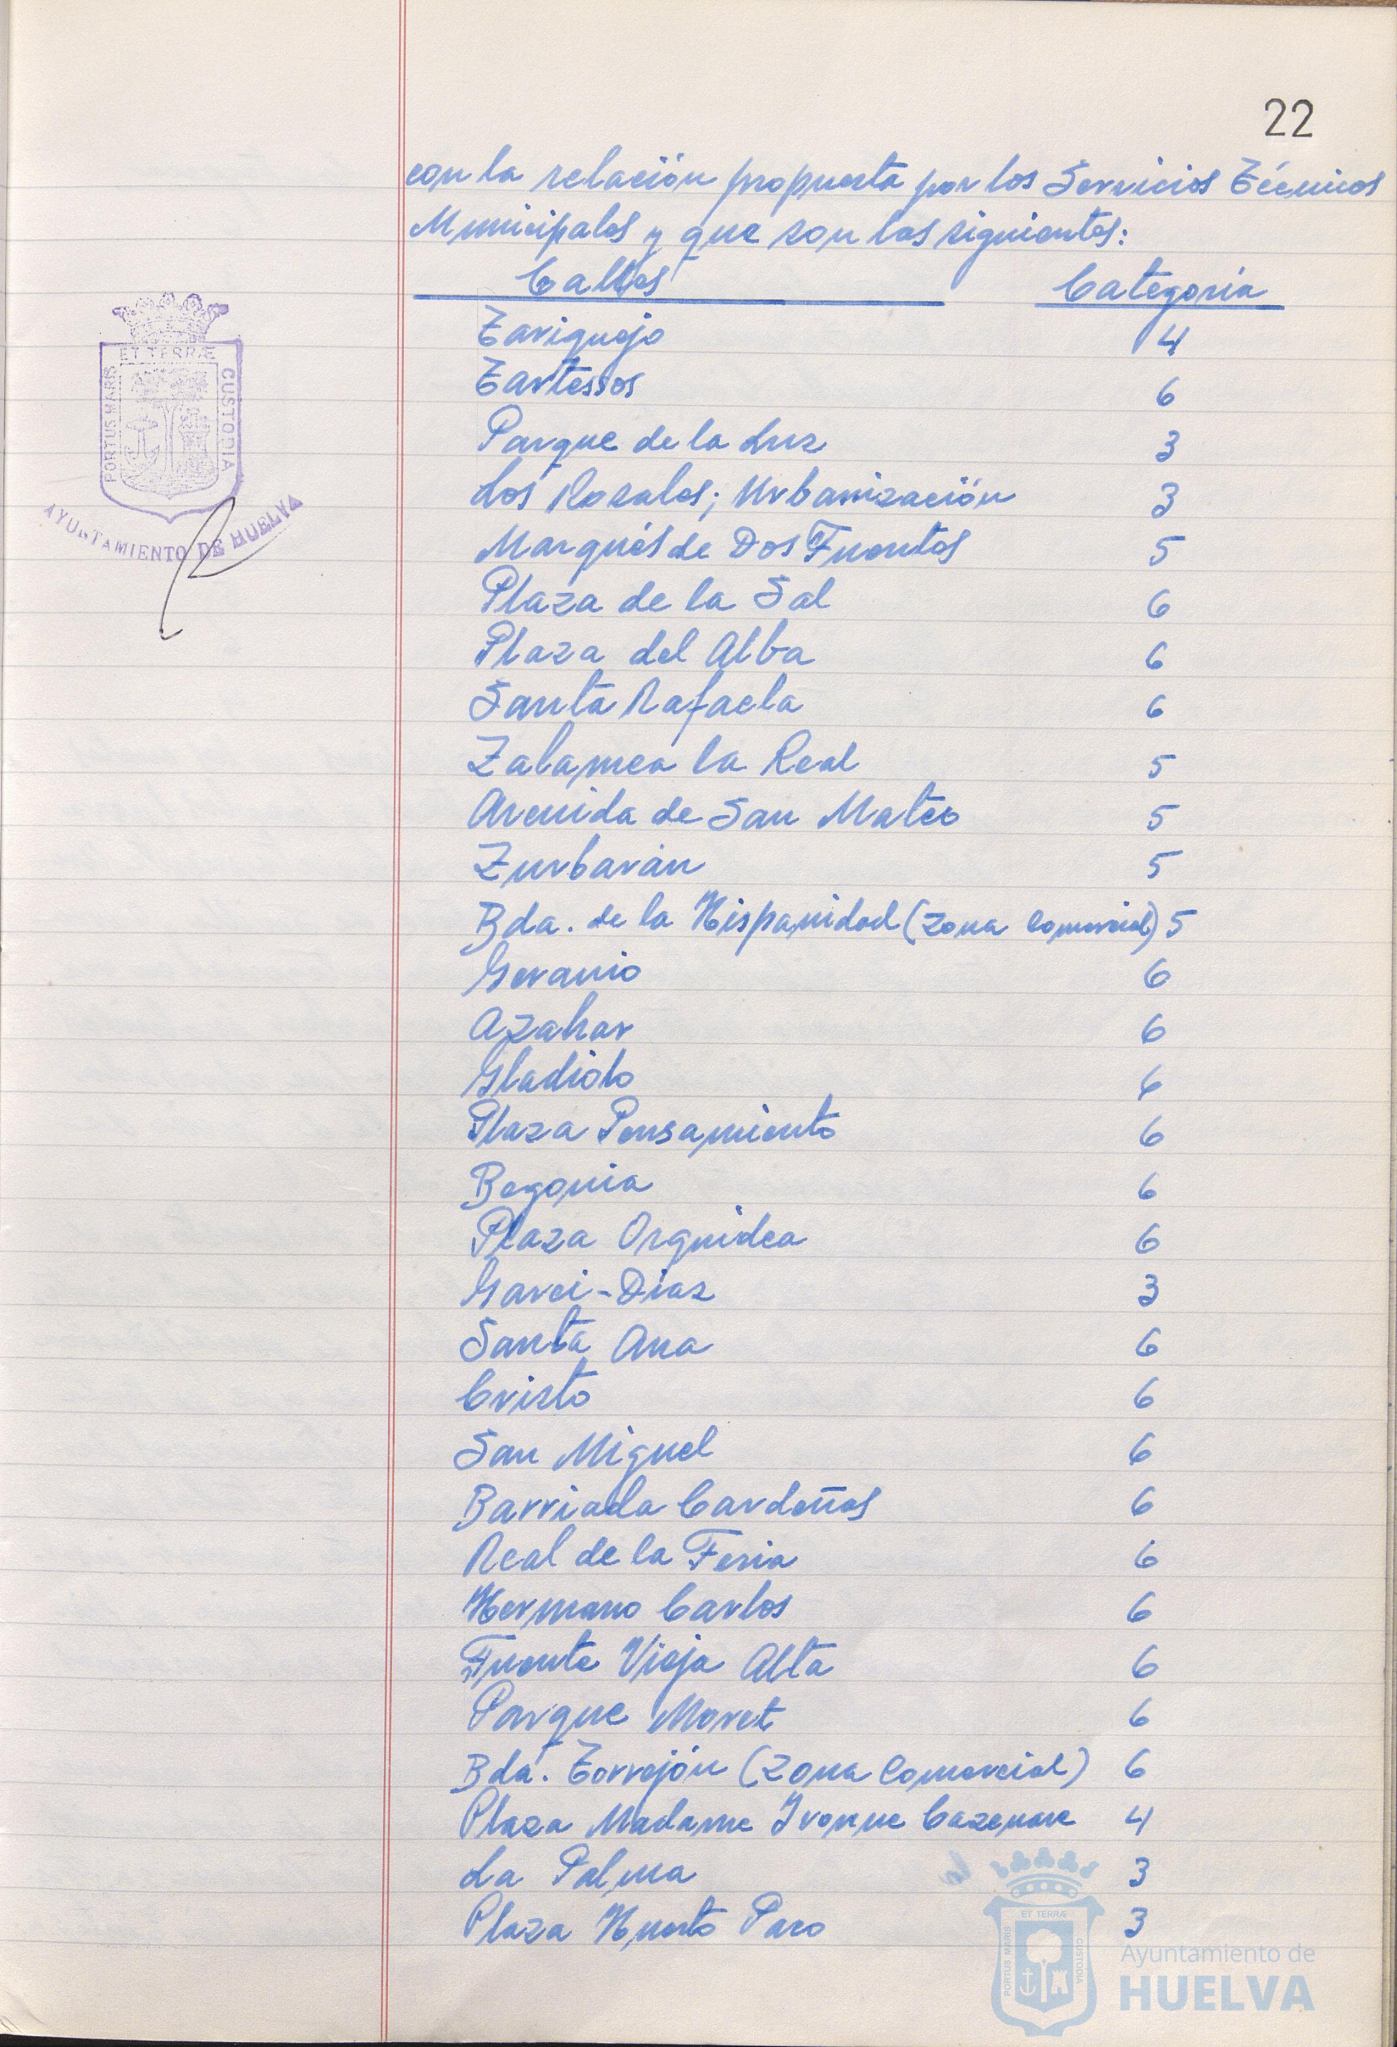 22
con la relación propuesta por los Servicios Técnicos
Municipales y que son las siguientes:
Calles Categoría
Tariquejo 4
Tartessos 6
Parque de la Luz 3
Los Rosales; Urbanización 3
Marqués de Dos Fuentes 5
Plaza de la Sal 6
Plaza del Alba 6
Santa Rafaela 6
Zalamea la Real 5
Avenida de San Mateo 5
Zurbarán 5
Bda. de la Hispanidad (Zona Comercial) 5
Geranio 6
Azahar 6
Gladiolo 6
Plaza Pensamiento 6
Begonia 6
Plaza Orquidea 6
Garci-Diaz 3
Santa Ana 6
Cristo 6
San Miguel 6
Barriada Cardeñas 6
Real de la Feria 6
Hermano Carlos 6
Fuente Vieja Alta 6
Parque Moret 6
Bda. Torrejón (Zona Comercial) 6
Plaza Madame Ivonne Cazenave 4
La Palma 3
Plaza Huerto Paco 3
PORTUS MARIS ET TERRÆ CUSTODIA
AYUNTAMIENTO DE HUELVA
PORTUS MARIS ET TERRÆ CUSTODIA
Ayuntamiento de
HUELVA